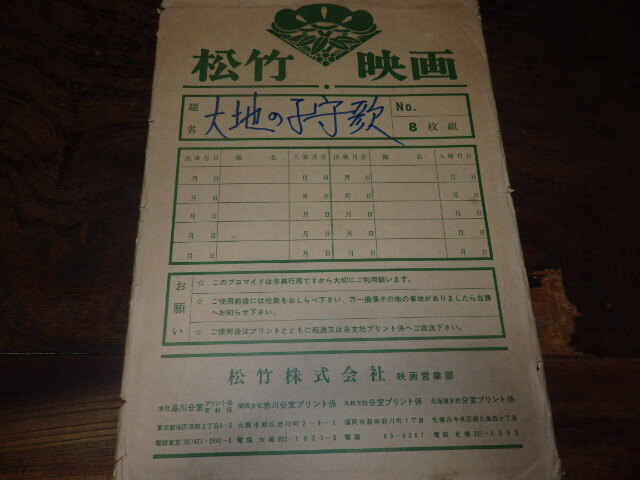 松竹映画
題名 大地の子守歌 No. 8枚組
出庫月日 館名 入庫月日 出庫月日 館名 入庫月日
月 日 月 日 月 日 月 日
月 日 月 日 月 日 月 日
月 日 月 日 月 日 月 日
月 日 月 日 月 日 月 日
月 日 月 日 月 日 月 日
お願い
☆ このブロマイドは本興行用ですから大切にご利用願います。
☆ ご使用前後には枚数をおしらべ下さい、万一損傷その他の事故がありましたら当課
へお知らせ下さい。
☆ ご使用後はプリントとともに転送又は各支社プリント係へご返送下さい。
松竹株式会社 映画営業部
本社品川分室プリント係 関西支社赤川分室プリント係 九州支社分室プリント係 北海道支社分室プリント係
東京都港区港南2丁目5-3 大阪市旭区赤川町2-4-1 札幌市中央区南九条西十丁目
電話東京(03)471-2641-3 電話大阪922-1031-3 電話 65-0367 電話札幌521-1095